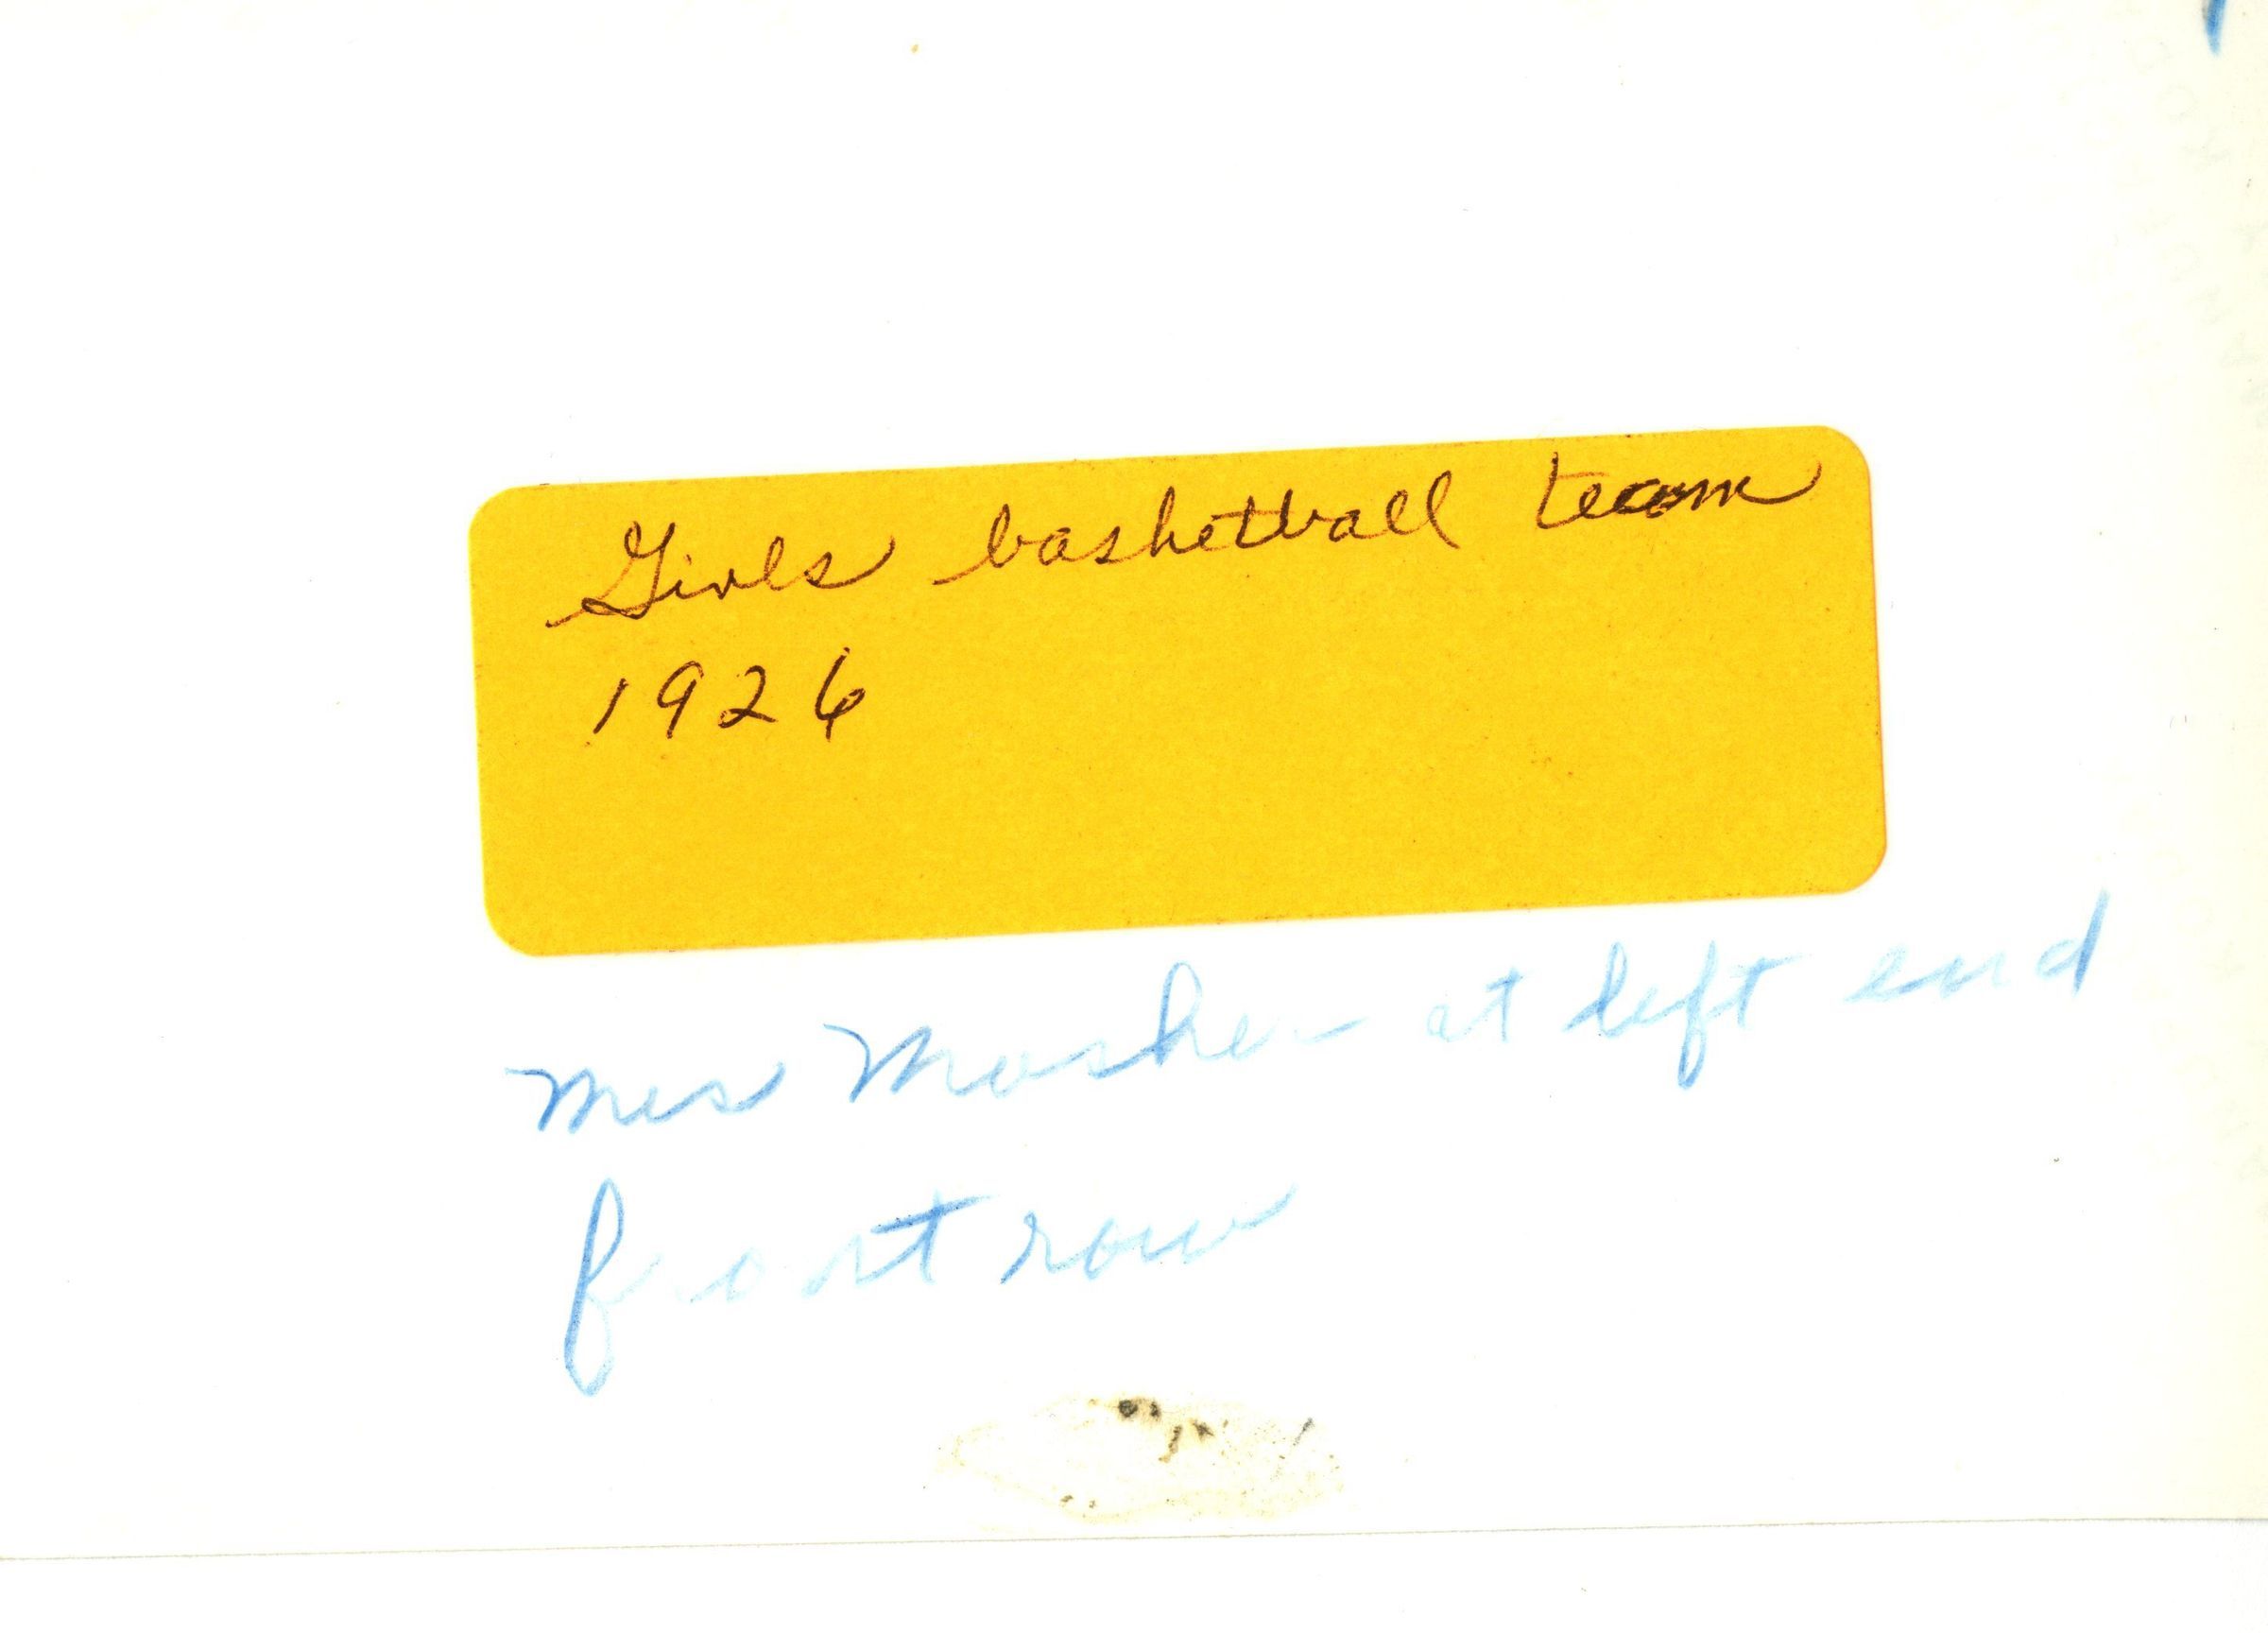 Girls basketball team
1926
Mrs Mosher at left end
front row